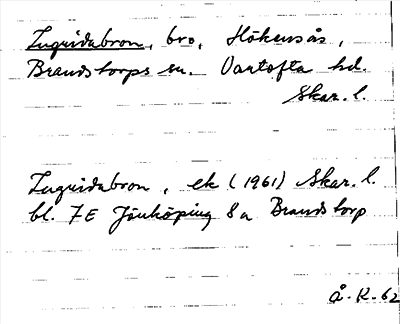 Inguridabron, bro, Hökensås,
Brandstorps sn. Vartofta hd.
Skar. l.
Inguridabron, ek (1961) Skar. l.
bl. 7E Jönköping 8a Brandstorp
Å. K. 62